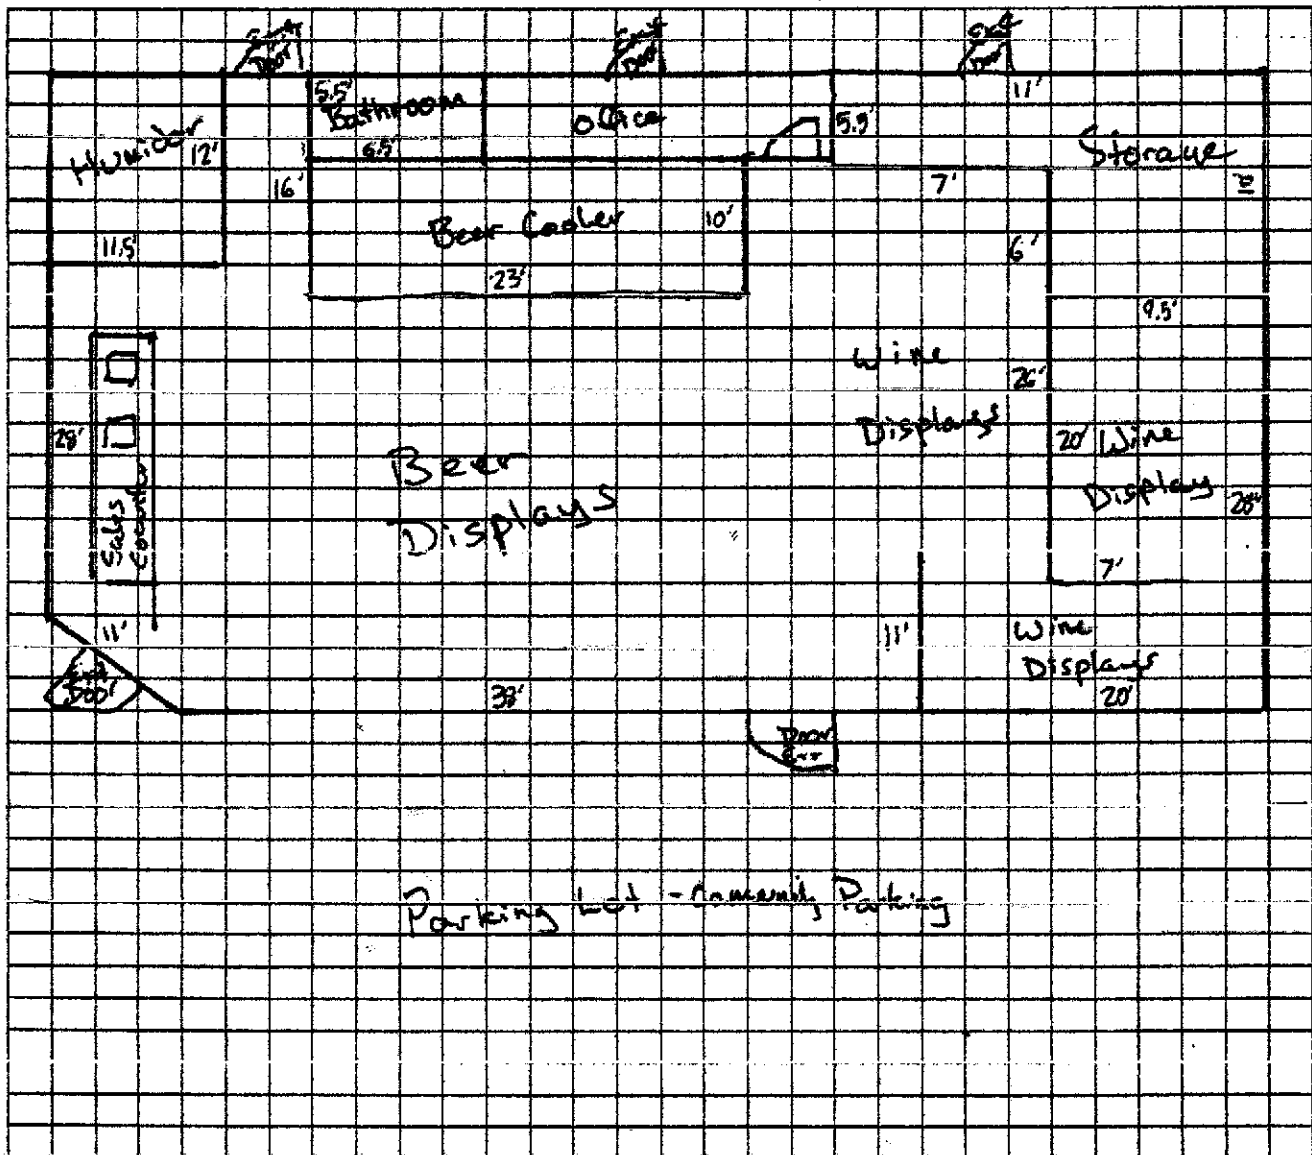 Exit
Door
Exit
Door
Exit
Door
5.5'
Bathroom
6.5'
Office
5.5'
11'
Storage
Humidor
12'
11.5'
16'
Beer Cooler
10'
23'
7'
6'
9.5'
Wine
Displays
26'
20'
Wine
Display
7'
28'
Sales
Counter
Beer
Displays
11'
Exit
Door
38'
11'
Wine
Displays
20'
Door
Parking Lot - Community Parking